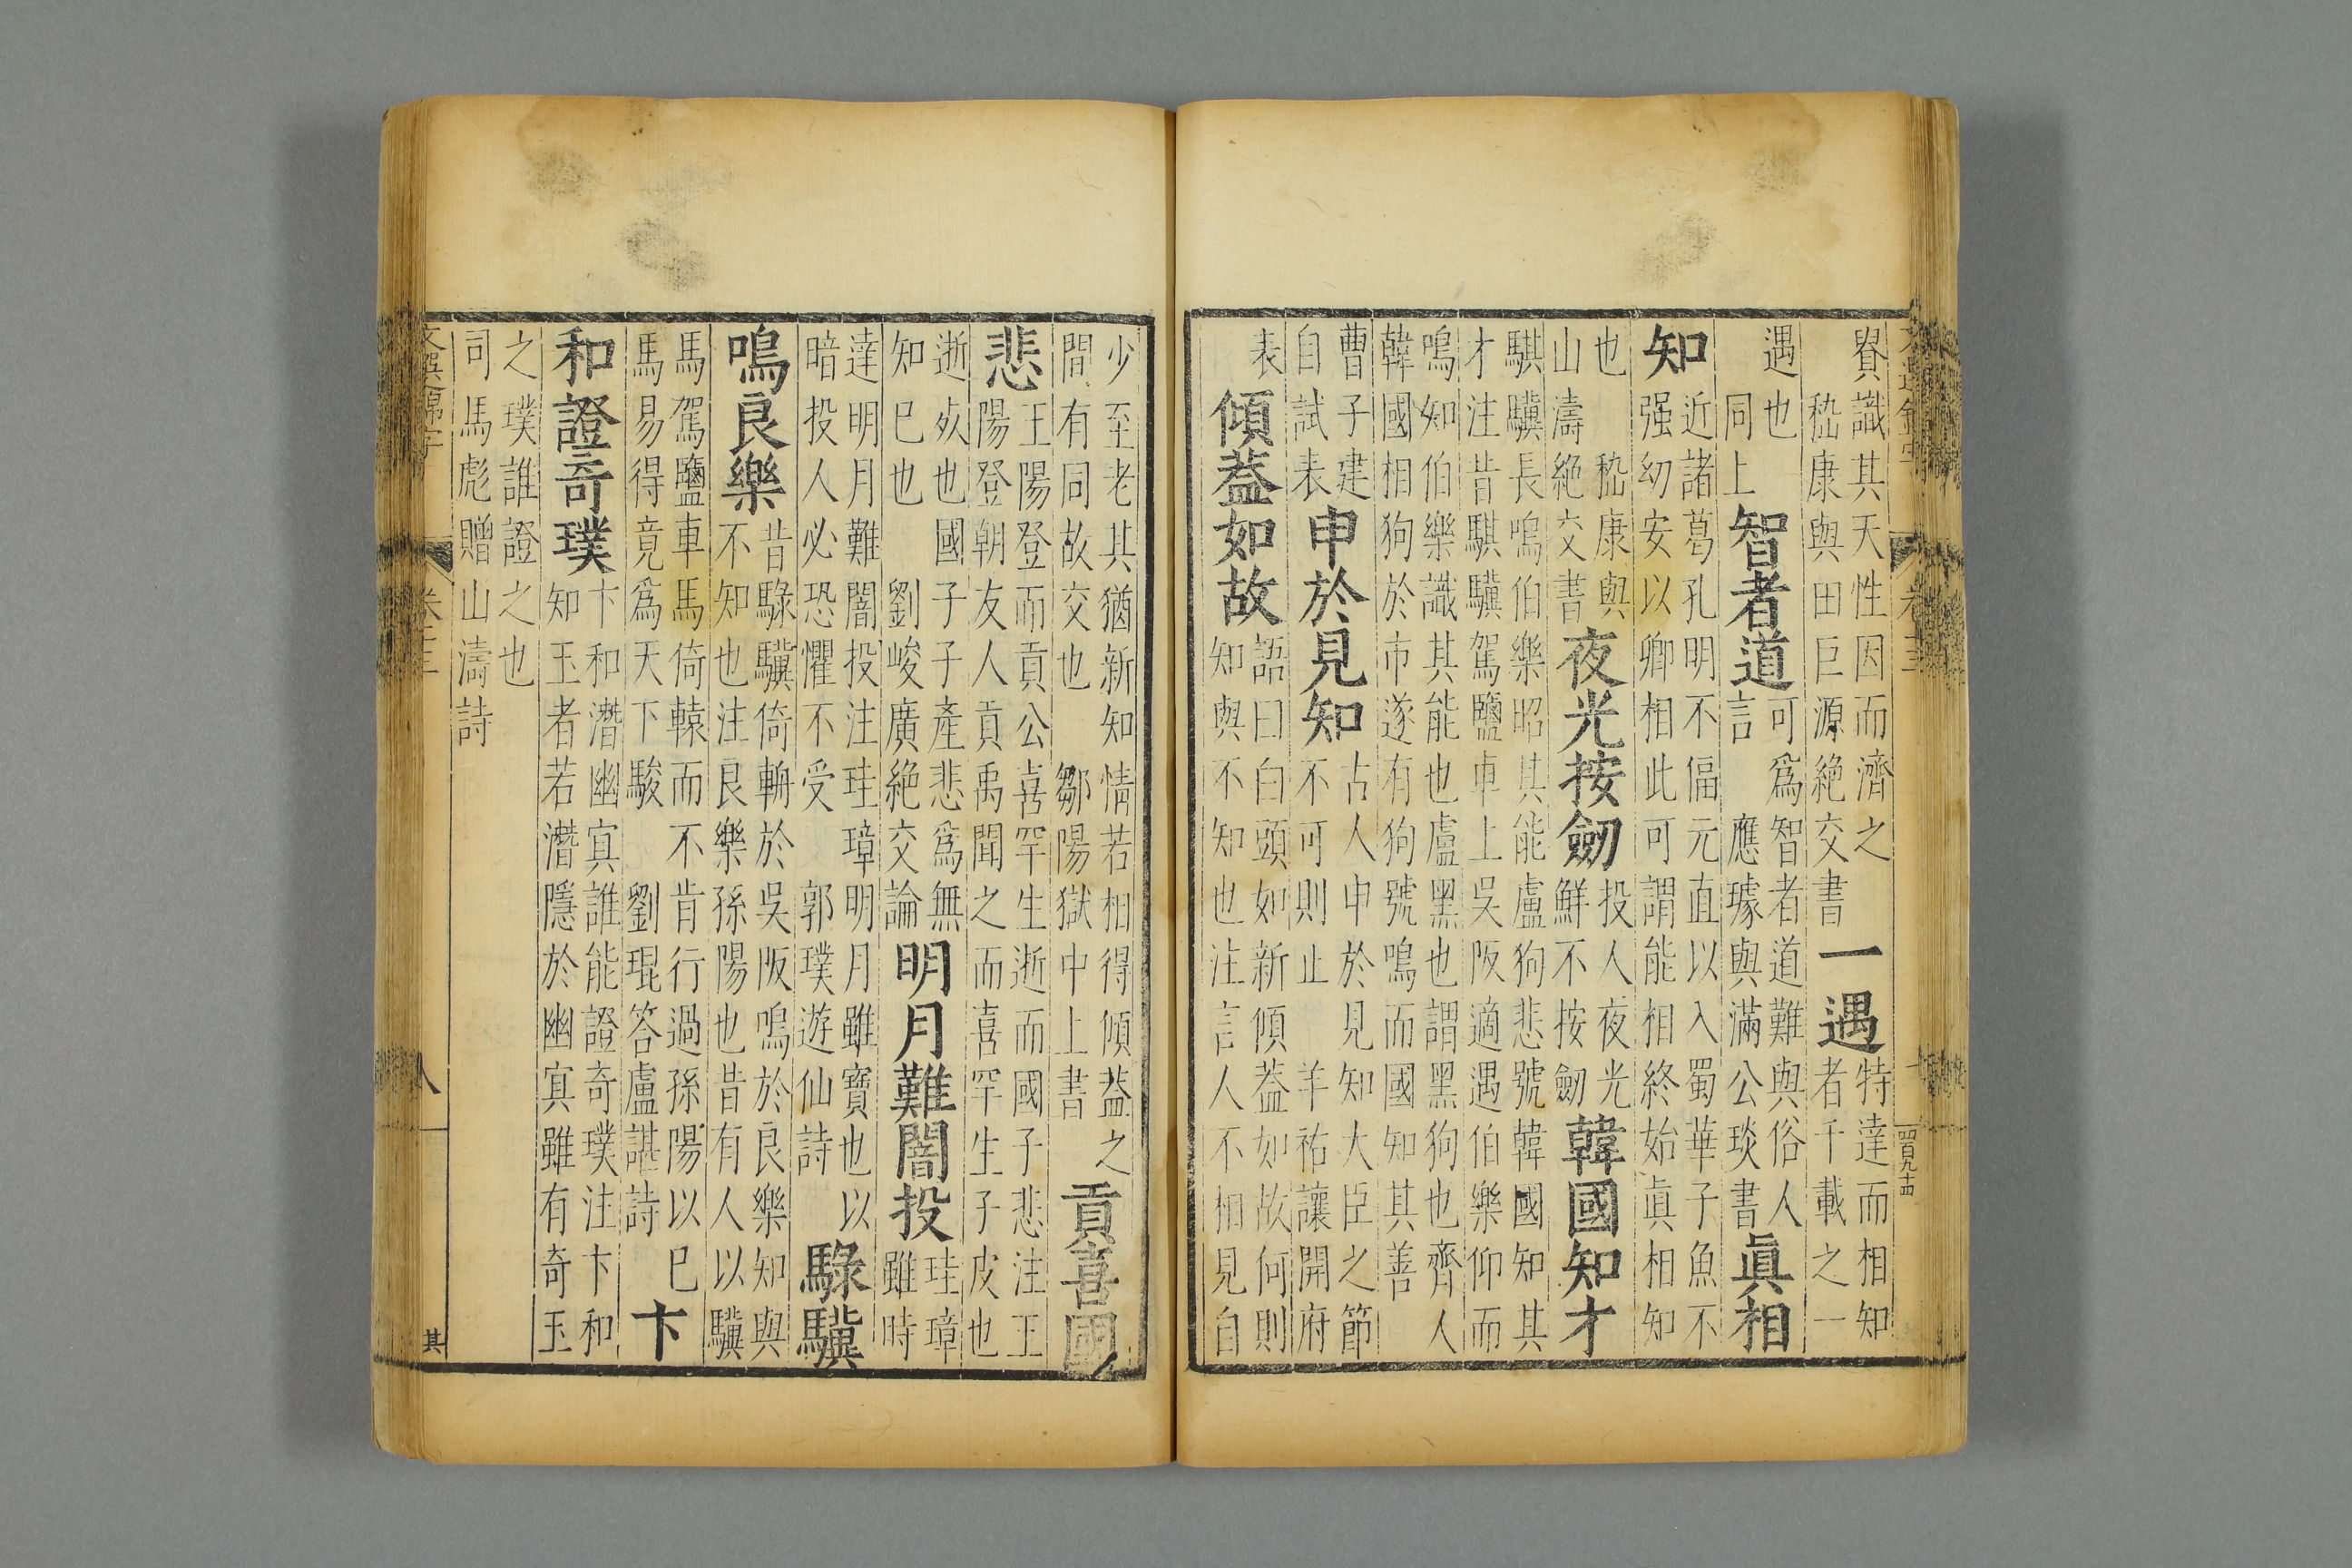 貴識其天性因而濟之
嵇康與田巨源絶交書
一遇
特達而相知
者千載之一
遇也
同上
智者道
可爲智者道難與俗人
言　應璩與滿公琰書
眞相
知
近諸葛孔明不偪元直以入蜀華子魚不
强幼安以卿相此可謂能相終始眞相知
也　嵇康與
山濤絶交書
夜光按劒
投人夜光
鮮不按劒
韓國知才
騏驥長鳴伯樂昭其能盧狗悲號韓國知其
才注昔騏驥駕鹽車上吳阪適遇伯樂仰而
鳴知伯樂識其能也盧黑也謂黑狗也齊人
韓國相狗於市遂有狗號鳴而國知其善
曹子建
自試表
申於見知
古人申於見知大臣之節
不可則止　羊祐讓開府
表
傾葢如故
語曰白頭如新傾葢如故何則
知與不知也注言人不相見自
四百九十四
少至老其猶新知情若相得傾葢之
間有同故交也　鄒陽獄中上書
貢喜國
悲
王陽登而貢公喜罕生逝而國子悲注王
陽登朝友人貢禹聞之而喜罕生子皮也
逝歿也國子子產悲爲無
知巳也　劉峻廣絶交論
明月難闇投
珪璋
雖時
達明月難闇投注珪璋明月雖寶也以
暗投人必恐懼不受　郭璞遊仙詩
騄驥
鳴良樂
昔騄驥倚輈於吳阪鳴於良樂知與
不知也注良樂孫陽也昔有人以驥
馬駕鹽車馬倚轅而不肯行過孫陽以巳
馬易得竟爲天下駿　劉琨答盧諶詩
卞
和證奇璞
卞和潛幽冥誰能證奇璞注卞和
知玉者若潛隱於幽冥雖有奇玉
之璞誰證之也
司馬彪贈山濤詩
文選錦字　卷十三　八　其